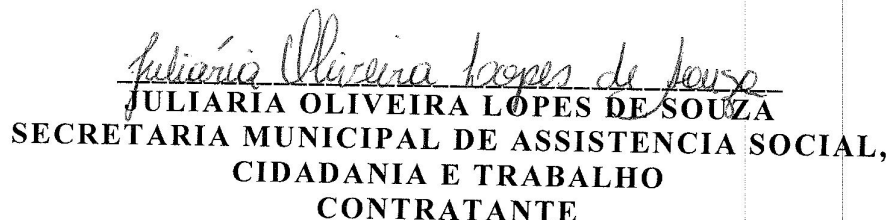 Juliária Oliveira Lopes de Souza
JULIARIA OLIVEIRA LOPES DE SOUZA
SECRETARIA MUNICIPAL DE ASSISTENCIA SOCIAL,
CIDADANIA E TRABALHO
CONTRATANTE